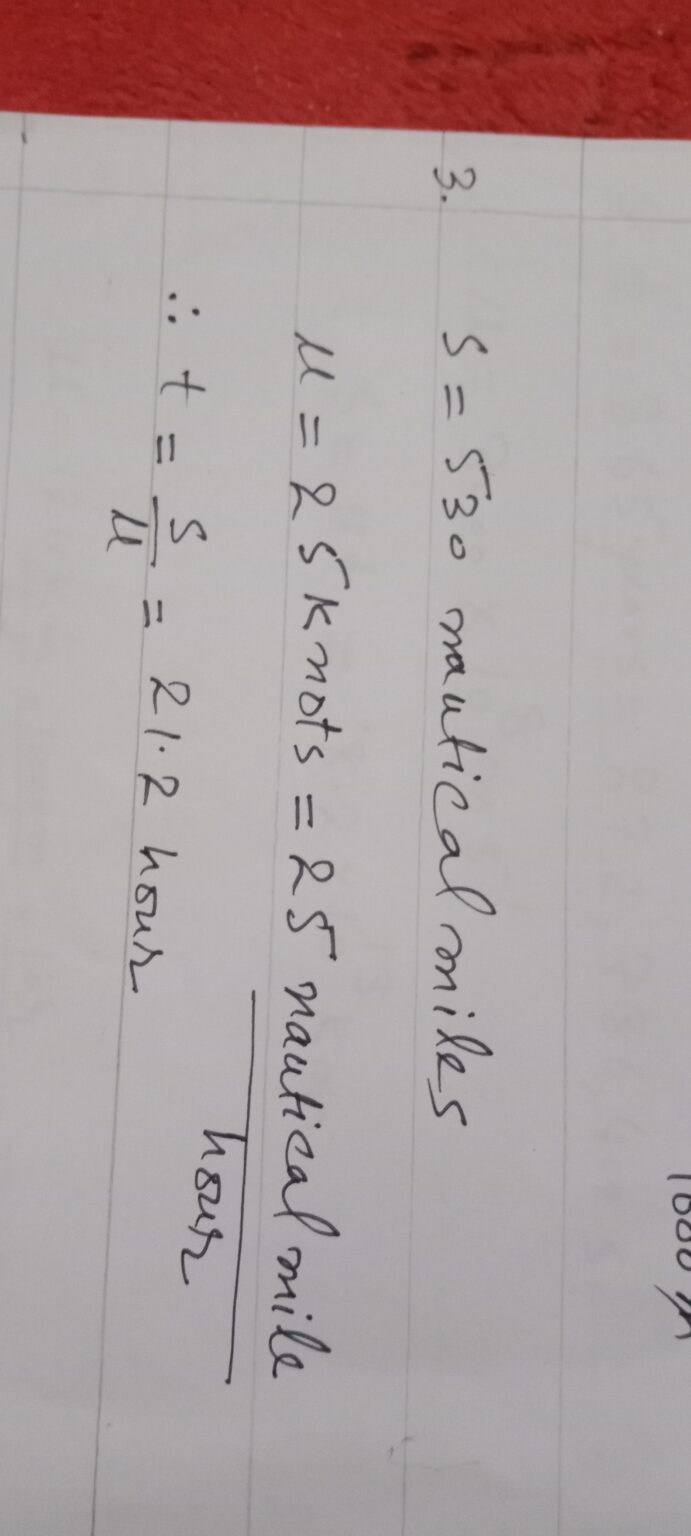 1000 m
3. S = 530 nautical miles
u = 25 knots = 25 nautical mile / hour
∴ t = S/u = 21.2 hour